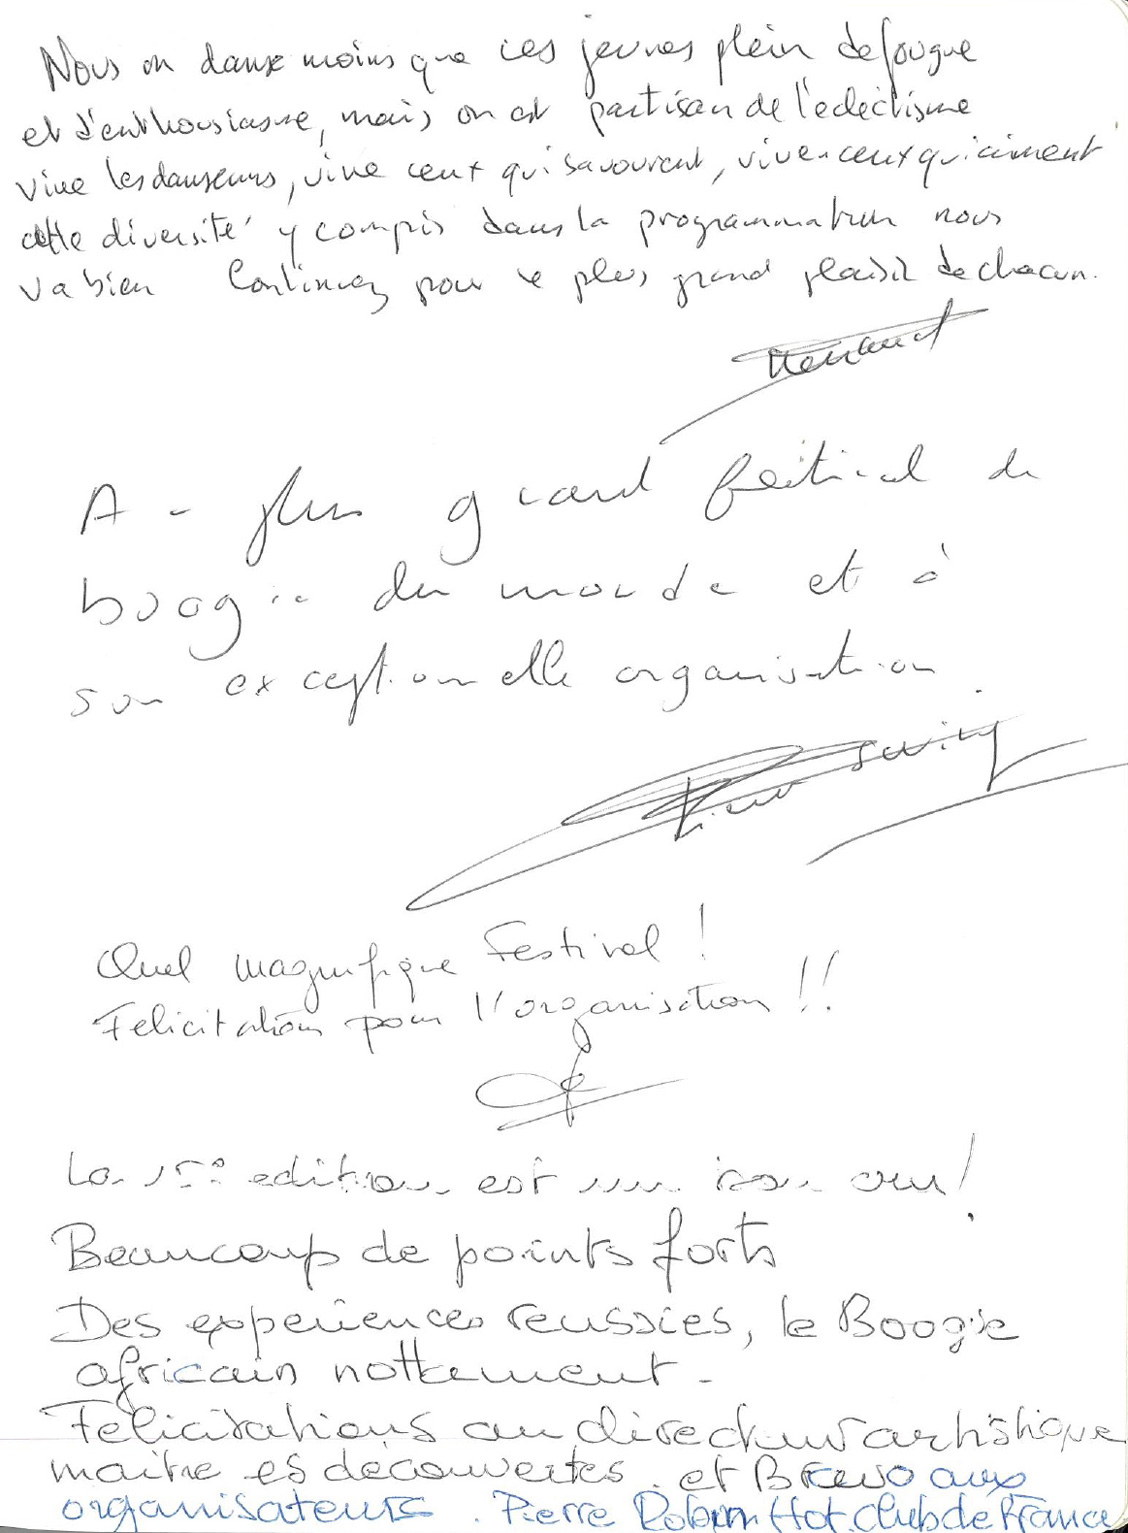 Nous on danse moins que ces jeunes plein de fougue
et d'enthousiasme, mais on est partisan de l'eclectisme
vive les danseurs, vive ceux qui savourent, vive ceux qui aiment
cette diversité y compris dans la programmation nous
va bien Continuez pour le plus grand plaisir de chacun.
A plus grand festival de
boogie du monde et à
son exceptionnelle organisation.
Swing
Quel magnifique Festival !
Felicitations pour l'organisation !!
La 15e edition est un bon cru !
Beaucoup de points forts
Des experiences reussies, le Boogie
africain nottement -
Félicitations au directeur artistique
maitre es découvertes. et Bravo aux
organisateurs. Pierre Robin Hot club de France